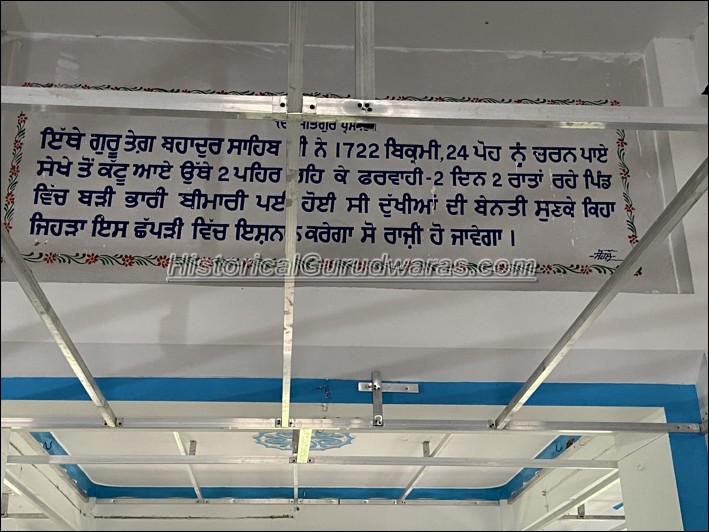 ਸਤਿਗੁਰ ਪ੍ਰਸਾਦਿ
ਇੱਥੇ ਗੁਰੂ ਤੇਗ਼ ਬਹਾਦੁਰ ਸਾਹਿਬ ਜੀ ਨੇ 1722 ਬਿਕ੍ਰਮੀ, 24 ਪੋਹ ਨੂੰ ਚਰਨ ਪਾਏ
ਸੇਖੇ ਤੋਂ ਕੱਟੂ ਆਏ ਉੱਥੇ 2 ਪਹਿਰ ਰਹਿ ਕੇ ਫਰਵਾਹੀ-2 ਦਿਨ 2 ਰਾਤਾਂ ਰਹੇ ਪਿੰਡ
ਵਿੱਚ ਬੜੀ ਭਾਰੀ ਬੀਮਾਰੀ ਪਈ ਹੋਈ ਸੀ ਦੁੱਖੀਆਂ ਦੀ ਬੇਨਤੀ ਸੁਣਕੇ ਕਿਹਾ
ਜਿਹੜਾ ਇਸ ਛੱਪੜੀ ਵਿੱਚ ਇਸ਼ਨਾਨ ਕਰੇਗਾ ਸੋ ਰਾਜ਼ੀ ਹੋ ਜਾਵੇਗਾ।
HistoricalGurudwaras.com